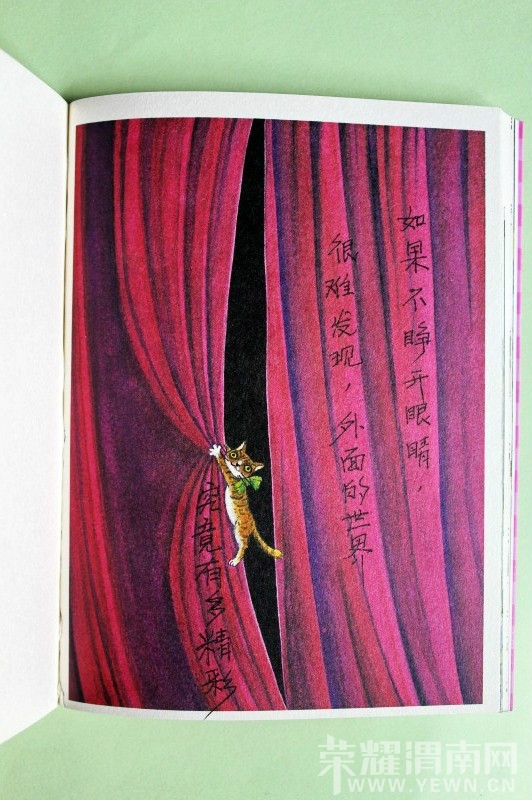 如果不睁开眼睛，
很难发现，外面的世界
究竟有多精彩
荣耀渭南网
WWW.YEWN.CN